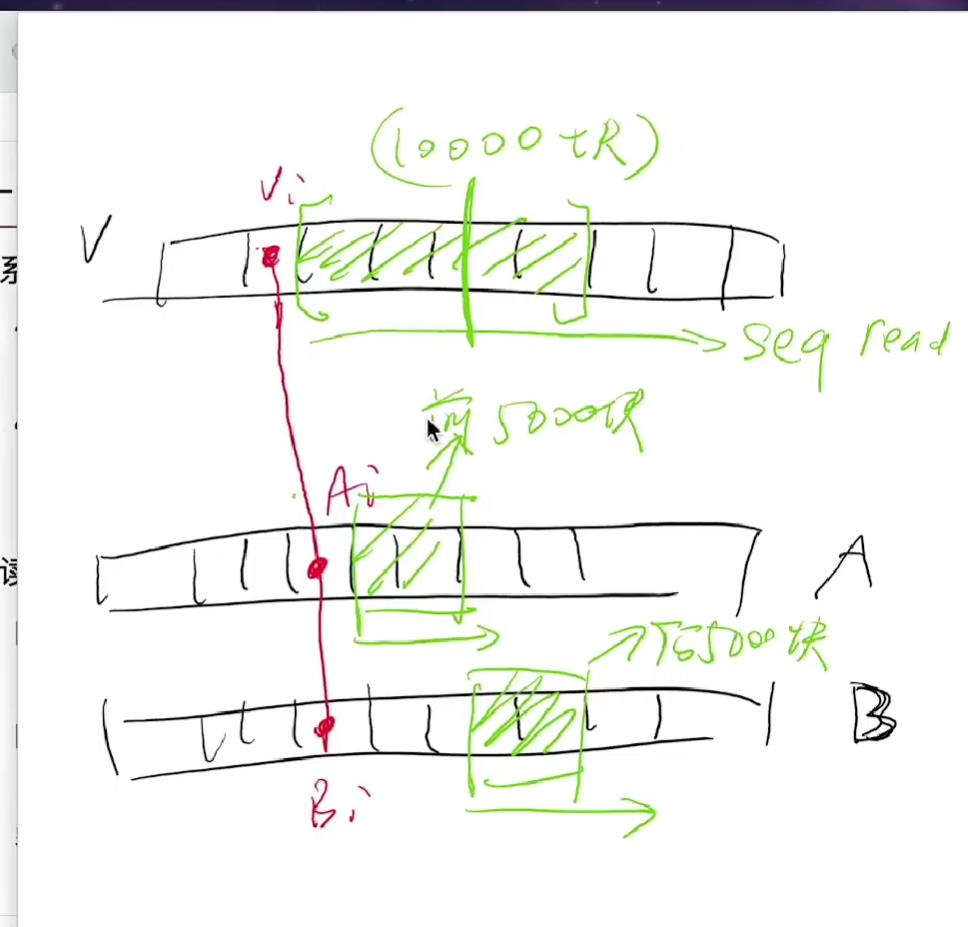 (10000 块)
Vi
V
seq read
前 5000块
Ai
A
后5000块
B
Bi